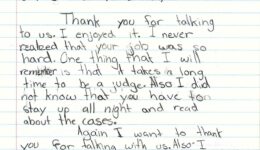 Thank you for talking
to us. I enjoyed it. I never
realized that your job was so
hard. One thing that I will
remember is that it takes a long
time to be a judge. Also I did
not know that you have to
stay up all night and read
about the cases.
Again I want to thank
you for talking with us. Also I